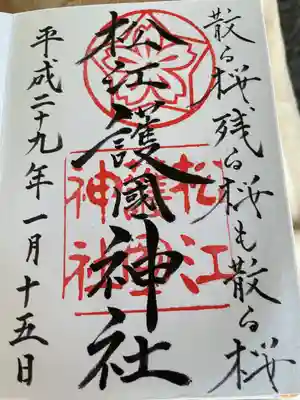 散る桜残る桜も散る桜
松江護國神社
松江
護國
神社
平成二十九年一月十五日